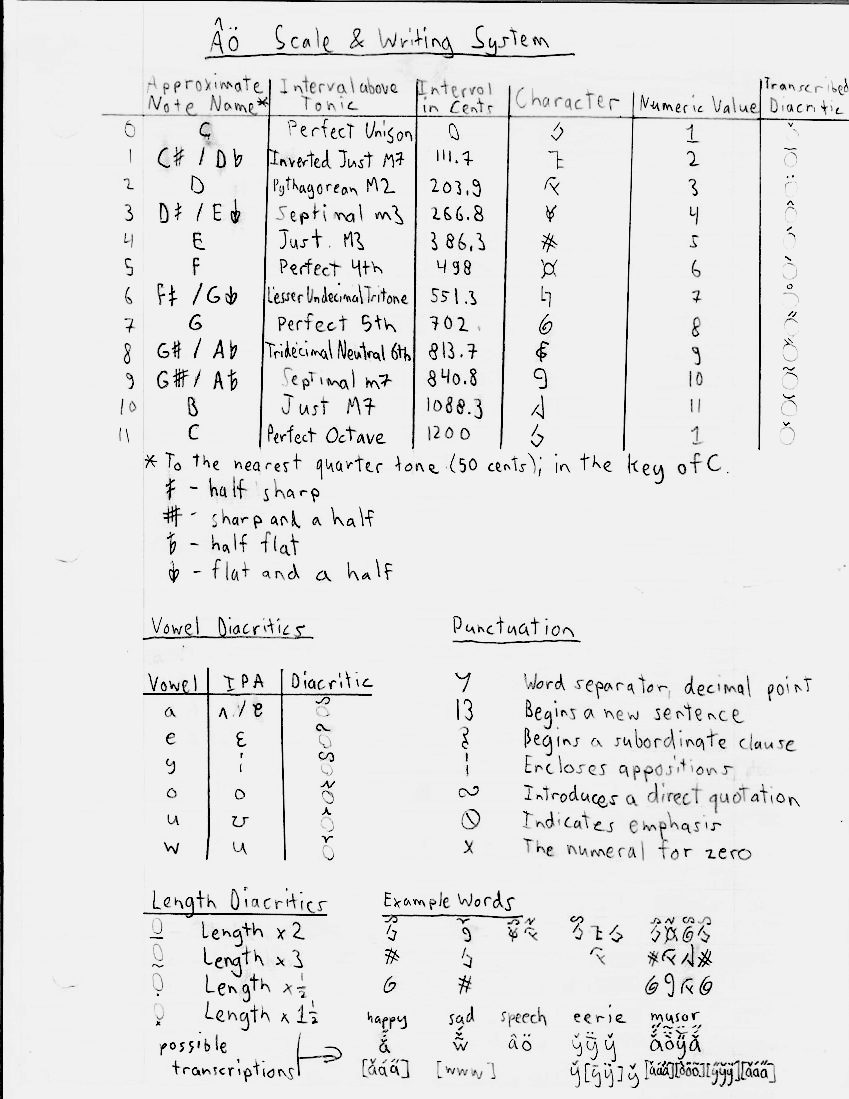 Âö Scale & Writing System
Approximate Note Name* Interval above Tonic Interval in Cents Character Numeric Value Transcribed Diacritic
0 C Perfect Unison 0 1
1 C# / D♭ Inverted Just M7 111.7 2
2 D Pythagorean M2 203.9 3
3 D / E Septimal m3 266.8 4
4 E Just M3 386.3 5
5 F Perfect 4th 498 6
6 F / G Lesser Undecimal Tritone 551.3 7
7 G Perfect 5th 702 8
8 G# / A♭ Tridecimal Neutral 6th 813.7 9
9 G / A Septimal m7 840.8 10
10 B Just M7 1088.3 11
11 C Perfect Octave 1200 1
* To the nearest quarter tone (50 cents); in the key of C.
- half sharp
- sharp and a half
- half flat
- flat and a half
Vowel Diacritics
Vowel IPA Diacritic
a ʌ / ɐ
e ɛ
y i
o o
u ʊ
w u
Punctuation
Word separator, decimal point
13 Begins a new sentence
Begins a subordinate clause
Encloses appositions
Introduces a direct quotation
Indicates emphasis
x The numeral for zero
Length Diacritics
Length x 2
Length x 3
Length x ½
Length x 1½
Example Words
happy sad speech eerie mysor
possible
transcriptions
âö
[www]